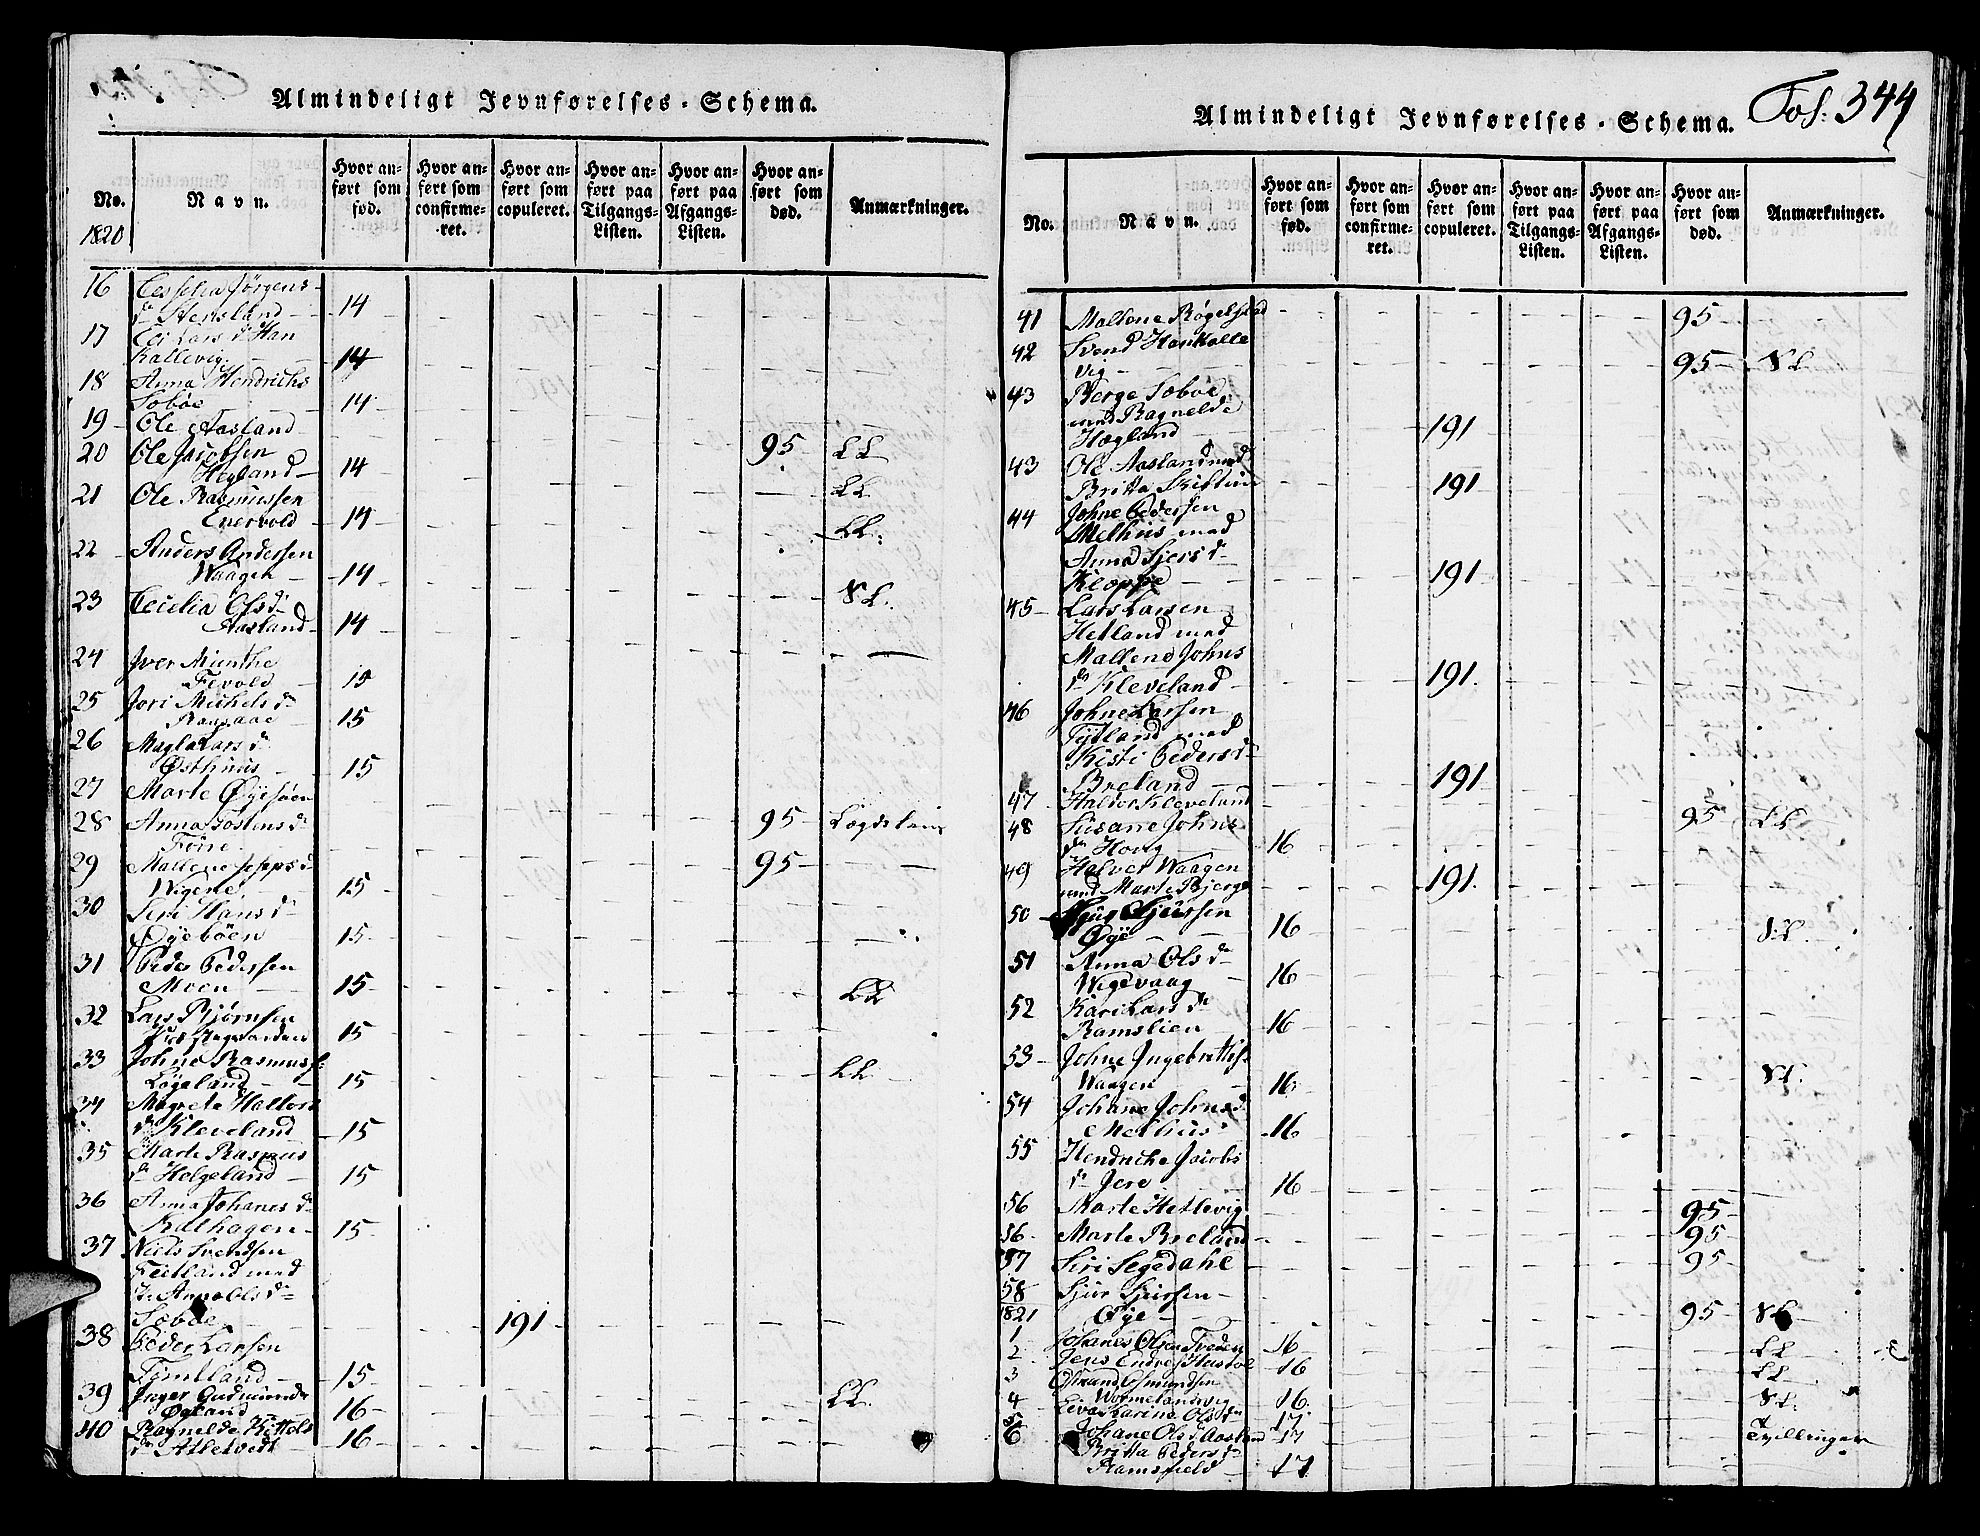 Almindeligt Jevnførelses-Schema.
No. Navn. Hvor anført som fød. Hvor anført som confirmeret. Hvor anført som copuleret. Hvor anført paa Tilgangs-Listen. Hvor anført paa Afgangs-Listen. Hvor anført som død. Anmærkninger.
1820
16 Jørgens-
dr 14
17 Lars dr Han
Kallevig 14
18 Anna Hendrichs
Sobøe 14
19 Ole Aasland 95 LL
20 Ole Jacobsen
Hegland 14 LL
21 Ole Rasmussen
Enervold 14 LL.
22 Anders Andersen
Waagen 14 SL.
23 Cecilia Ols dr
Aasland 14
24 Iver Munthe
Fevold 15
25 Jori Michels dr
15
26 Lars dr
Østhuus 15
27 Marte Øyesøen 95
28 Anna Tostens dr
95
29 Mallene Jepps dr
Wigene 15
30 Siri Hans dr
Øyebøen 15
31 Peder Pedersen
Moen 15 LL
32 Lars Bjørnsen
15
33 Johne Rasmuss:
Løgeland 15 LL
34 Magrete Hallors
dr Kleveland 15
35 Marte Rasmus
dr Helgeland 15
36 Anna Johanes dr
Kalhagen 15
37 Niels Svendsen
Feitland med
Anna Ols dr
Sobøe 191
38 Peder Larsen
Tymtland 15 LL
39 Inger Gudmunds
16
40 Ragnelde Kittels
dr Atletvedt 16
Almindeligt Jevnførelses-Schema. Fol: 344
No. Navn. Hvor anført som fød. Hvor anført som confirmeret. Hvor anført som copuleret. Hvor anført paa Tilgangs-Listen. Hvor anført paa Afgangs-Listen. Hvor anført som død. Anmærkninger.
41 Mallene Røgelstad 95
42 Svend Hankalle
vig 95 SL
43 Berge Sobøe
med Ragnelde
Hægland 191
43 Ole Aasland med
Britta 191
44 Johne Pedersen
Melhus med
Anna Sjers dr
Kloppe 191
45 Lars Larsen
Hetland med
Mallene Johns
dr Kleveland 191
46 Johne Larsen
Tytland med
Kisti Peders dr
Breland 191
47 Haldor Kleveland 95 LL
48 Susane Johns
dr Houg 16
49 Halver Waagen
med Marte Bjerge 191.
50 Sjursen
Øye 16 SL
51 Anna Ols dr
Wigevaag 16
52 Kari Lars dr
Ramslien 16
53 Johne Ingebretts:
Waagen 16 SL.
54 Johane Johns d
Melhus 16
55 Hendriche Jacobs
dr Jere 16
56 Marte Hetlevig 95
56 Marte Breland 95
57 Siri Segedahl 95
58 Sjur Sjursen
1821 Øye 95 SL
1 Johanes Olsen Tveden 16 LL
2 Jens Endres 16 LL
3 Osmund Osmundsen
16 SL.
4 Eva Karine Ols dr 17
5 Johane Ols d Aasland 17 Tvillinger
6 Britta Peders dr
Ramsfield 17